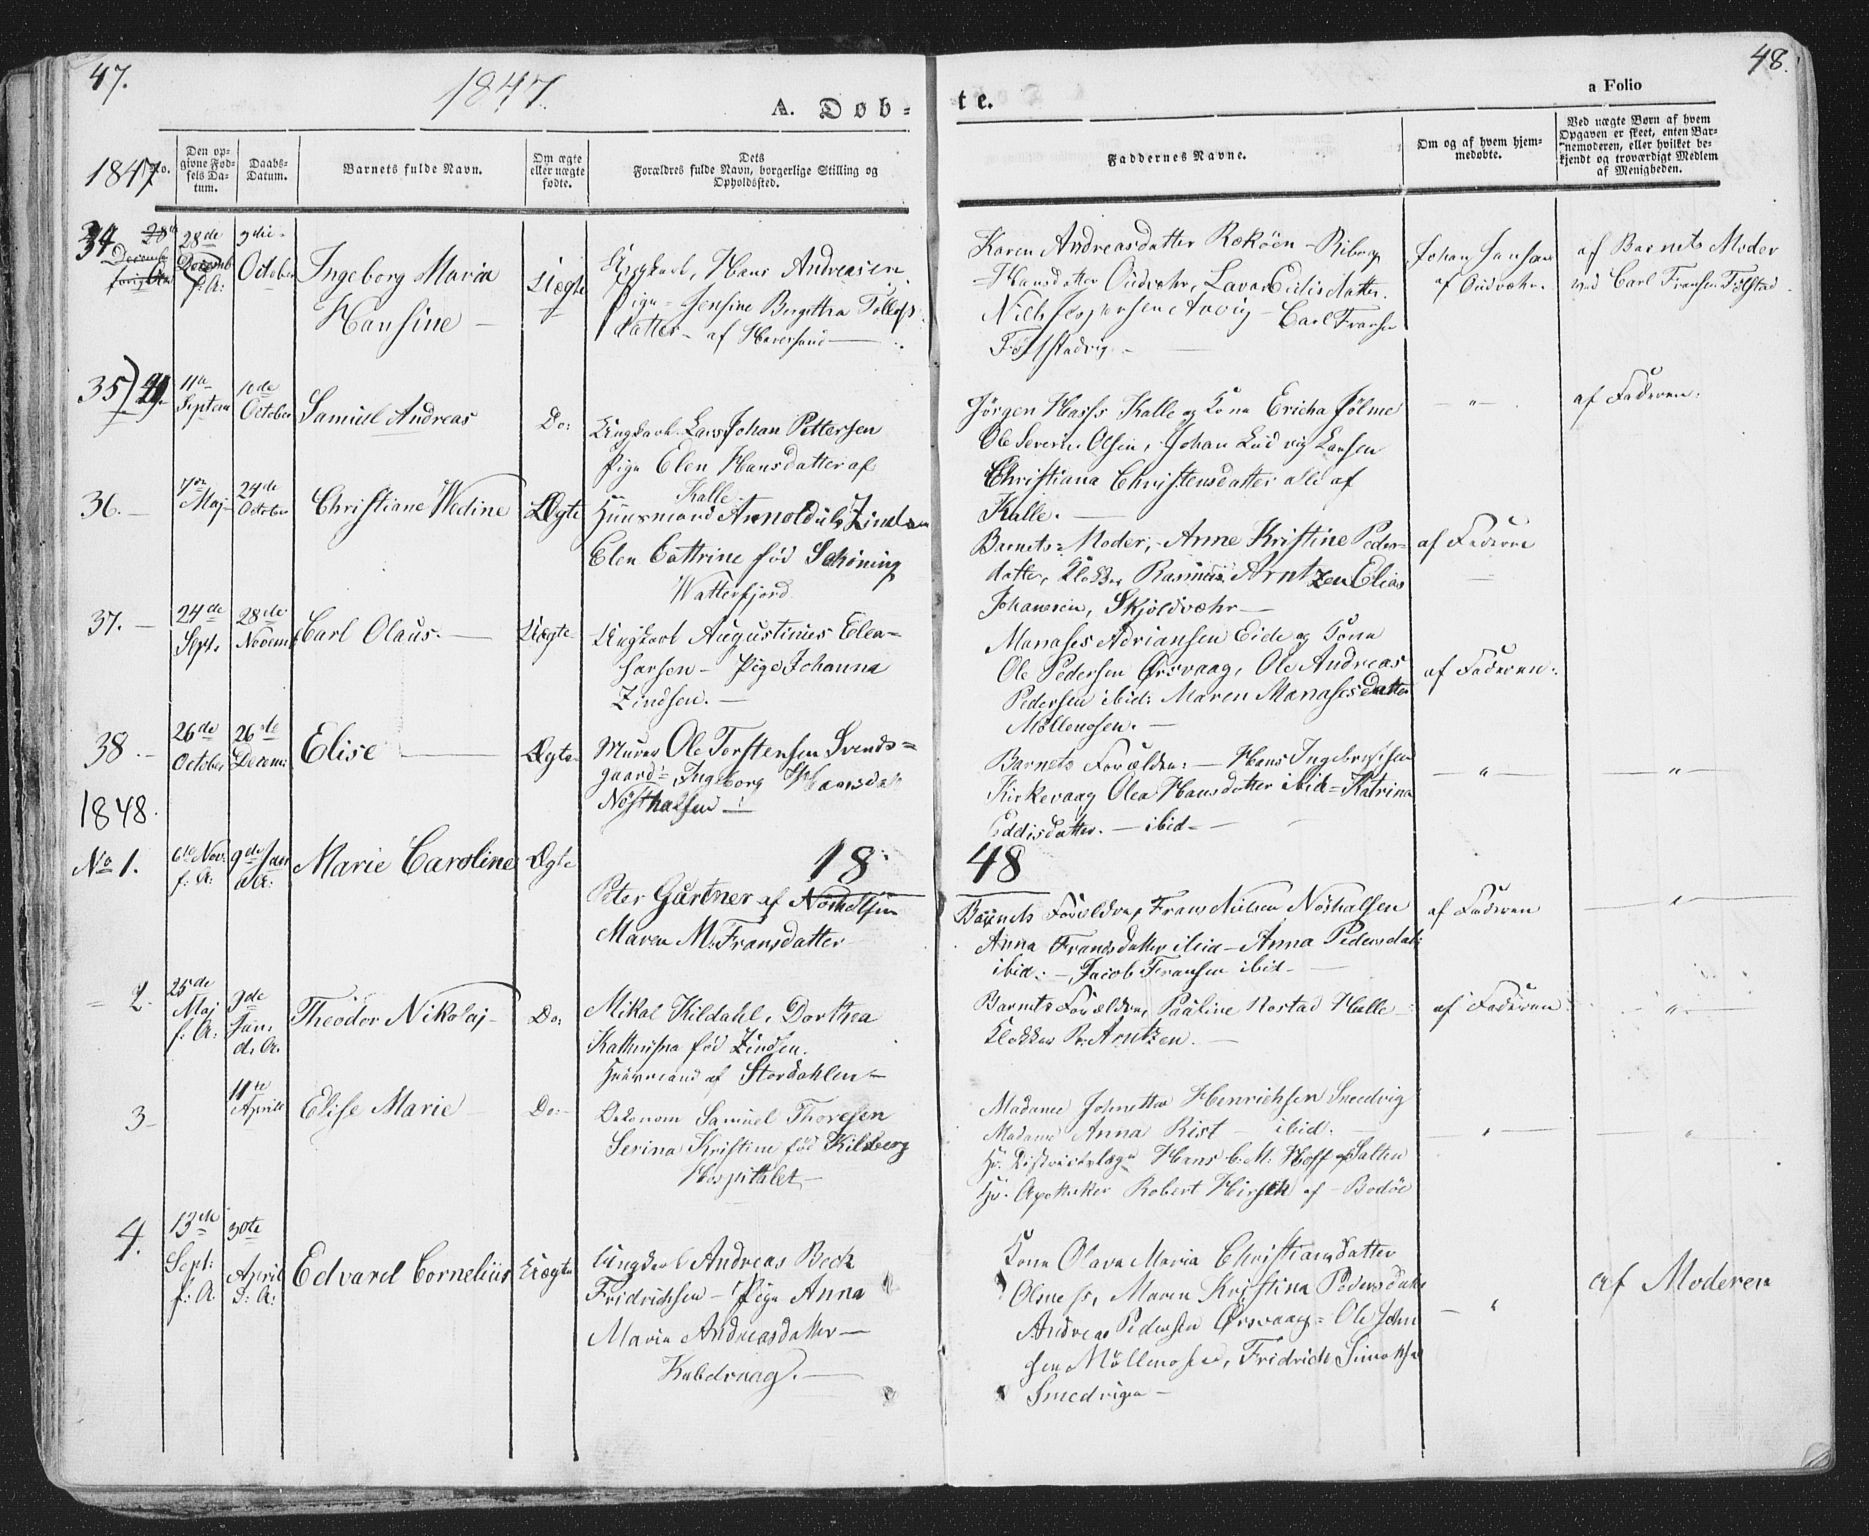 47.
1847.
A. Døb-
te.
a Folio
48.
1847
No.
Den op-
givne Fød-
sels Da-
tum.
Daabs-
Datum.
Barnets fulde Navn.
Om ægte
eller uægte
fødte.
Dets
Forældres fulde Navn, borgerlige Stilling og
Opholdssted.
Faddernes Navne.
Om og af hvem hjem-
medøbte.
Ved uægte Børn af hvem
Opgaven er skeet, enten Bar-
nemoderen, eller hvilket be-
kjendt og troværdigt Medlem
af Menigheden.
34.
28de
Decemb
f: A:
3die
October
Ingeborg Maria
Hansine
Uægte
Ungkarl, Hans Andreasen
Pige Jensine Bergitha Tollefs
datter af
Karen Andreasdatter Rokøen - Riborg
Hansdatter Oudvæhr, Lava Eidisdatter.
Niels Jespersen Aavig - Carl Fransen
Føllstadvig.
Johan Jansen
af Oudvæhr.
af Barnets Moder
ved Carl Fransen Følstad.
35)
11te
Septem
10de
October
Samuel Andreas
Do:
Ungkarl Lars Johan Pettersen
Pige Elen Hansdatter af
Kalle
Jørgen Hass Kalle og Kona Ericha Jølme
Ole Severin Olsen, Johan Ludvig Larsen
Christiana Christensdatter alle af
Kalle.
"
af Faderen:
36.
Maj
24de
October
Christiane Wedine
Ægte
Huusmand Arnoldus Zindsen
Elen Cattrine fød Schøning
Watterfjord
Barnets Moder, Anne Kristine Peder-
datter, Klokker Rasmus Arntzen Elias
Johansen, Skjoldvæhr
af Faderen
37.
24de
Sept.
28de
Novemb
Carl Olaus.
Uægte
Ungkarl Augustinus Elea-
sarsen - Pige Johanna
Zindsen.
Manases Adriansen Eide og Kona
Ole Pedersen Ørsvaag, Ole Andreas
Pedersen ibid: Maren Manasesdatter
Møllenosen.
af Faderen:
38.
26de
October
26de
Decemb
Elise
Ægte
Murer Ole Torstensen Svends-
gaard: Ingeborg Hansdat
Nøsthalsen
Barnets Forældre: - Hans Ingebregtsen
Kirkevaag Olea Hansdatter ibid - Katrina
Eddisdatter. - ibid -
"
"
1848.
18
48
No 1.
6te Nov:
f: A:
9de Jan
d: A:
Marie Caroline
Ægte
Peter Gürtner af Nøshalsen
Maren M. Fransdatter
Barnets Forældre, Frans Nielsen Nøshalsen
Anna Fransdatter ibid - Anna Pedersdat:
ibid: - Jacob Fransen ibid -
af Faderen
"
2.
25de
Maj
f: A:
9de
Jan.
d. A.
Theodor Nikolaj
Do:
Mikal Kildahl, Dorthea
Kathrina fød Zindsen.
Huusmand af Stordahlen
Barnets Forældre, Pauline Rostad Halle
Klokker R. Arntzen.
af Faderen
"
3
11te
Aprill
Elise Marie
Do:
Oekonom Samuel Thoresen
Serina Kristine fød Kilberg
Hospitalet
Madame Johnetta Henrichsen Smedvig
Madame Anna Rist - ibid.
Hr. Districtslæge Hans C. M: Hoff af Salten
Hr. Apotheker Robert Hirsch af Bodøe
"
"
4.
13de
Sept:
f: A.
30te
April
d: A:
Edvard Cornelius
Uægte
Ungkarl Andreas Beck
Fridrichsen - Pige Anna
Maria Andreasdatter
Kabelvaag.
Kona Olava Maria Christiansdatter
Olmess, Maren Kristina Pedersdatter
Andreas Pedersen Ørsvaag - Ole John
sen Møllenosen, Fridrich Simonsen
Smedvigen
"
af Moderen